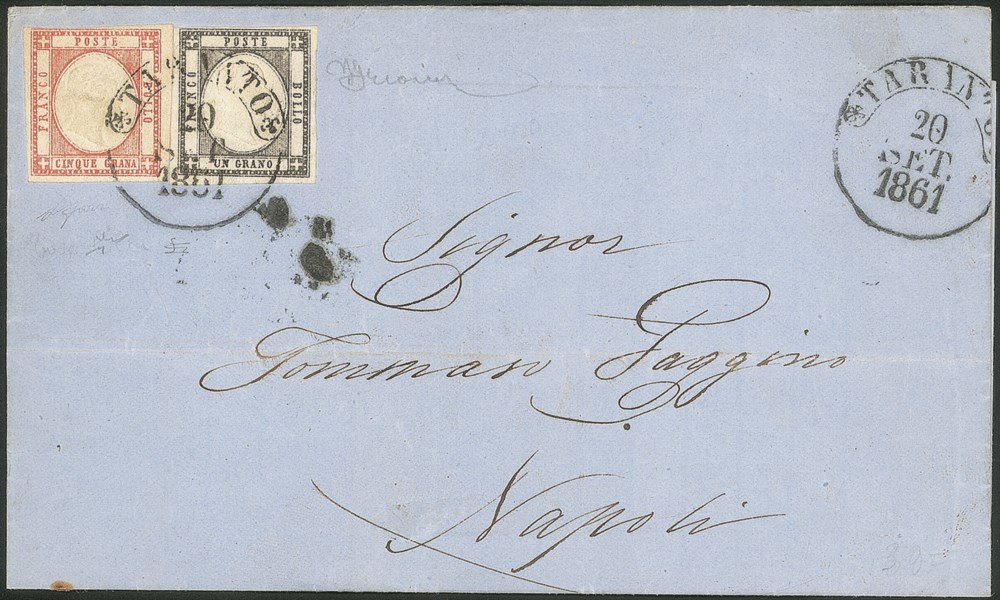 POSTE
FRANCO
BOLLO
CINQUE GRANA
POSTE
FRANCO
BOLLO
UN GRANO
TARANTO
20
SET.
1861
TARANTO
20
SET.
1861
Signor
Tommaso Faggino
Napoli